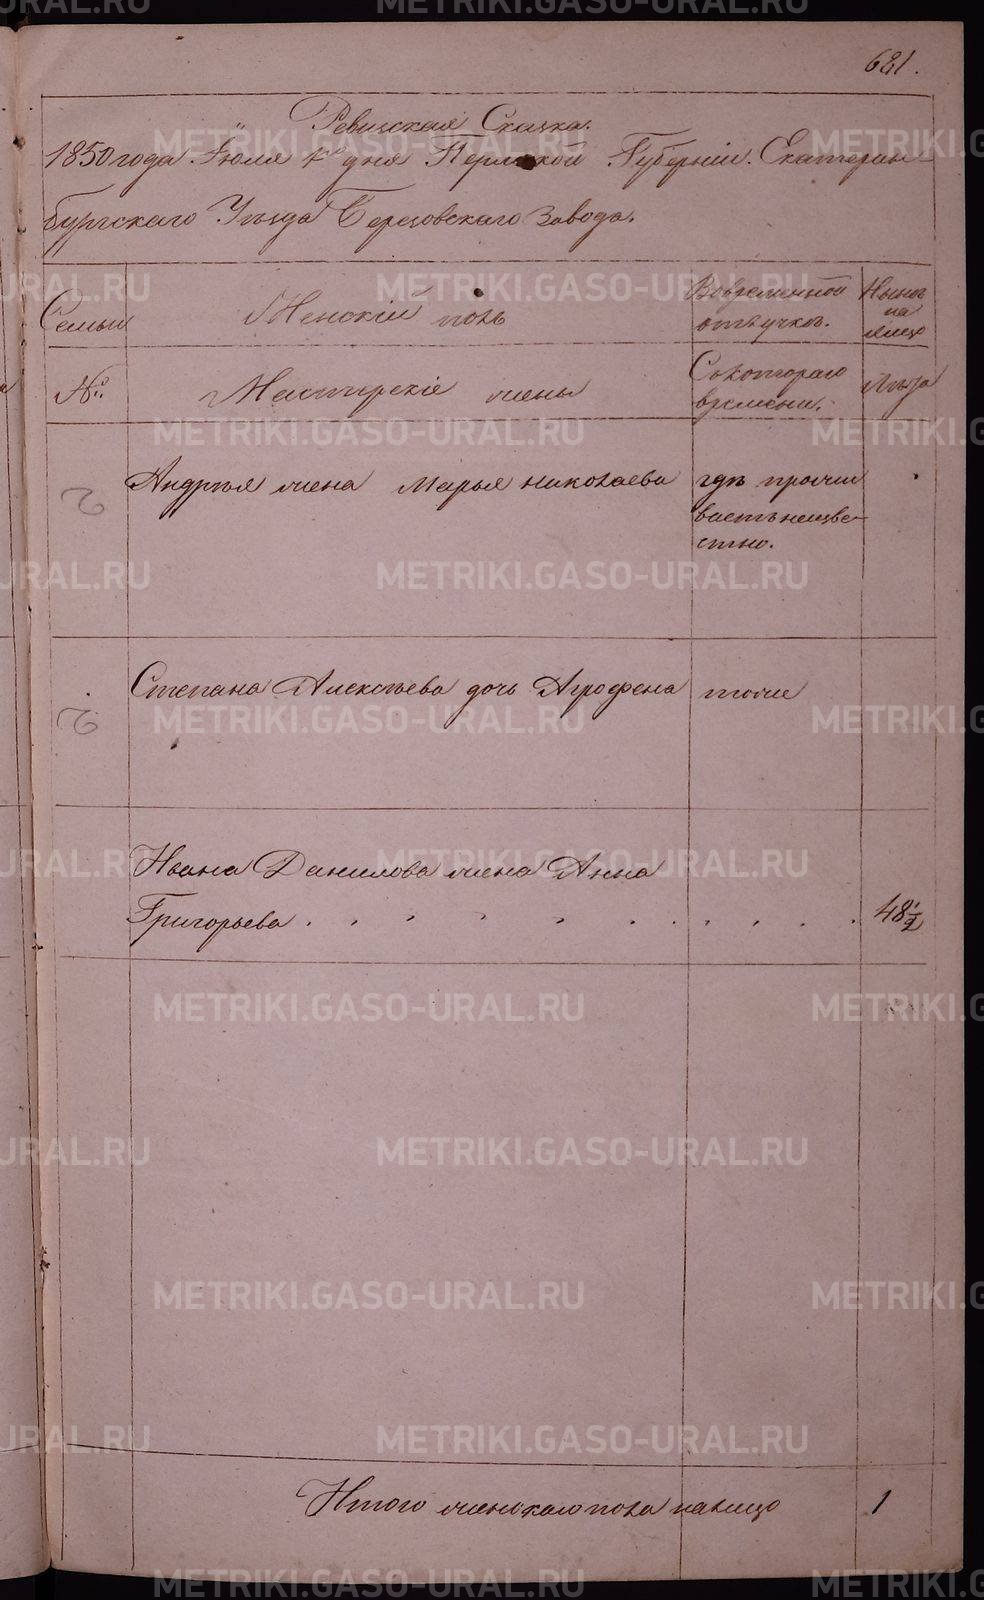 681.
Ревизская Сказка.
1850 года Июля 1го дня Пермской Губерніи Екатерин
бургскаго Уѣзда Березовскаго Завода.
Семьи
Женскій полъ
Вовременной
отлучкѣ.
Нынѣ
на
лицо
№
Мастерскіе жены
Скотораго
времени.
Лѣта
Андрѣя жена Марья николаева
гдѣ прожи
ваетъ неизве-
стно.
2
Степана Алексѣева дочь Агрофена
тоже
2
Ивана Данилова жена Анна
Григорьева
48 1/2
Итого женскаго пола налицо
1
METRIKI.GASO-URAL.RU